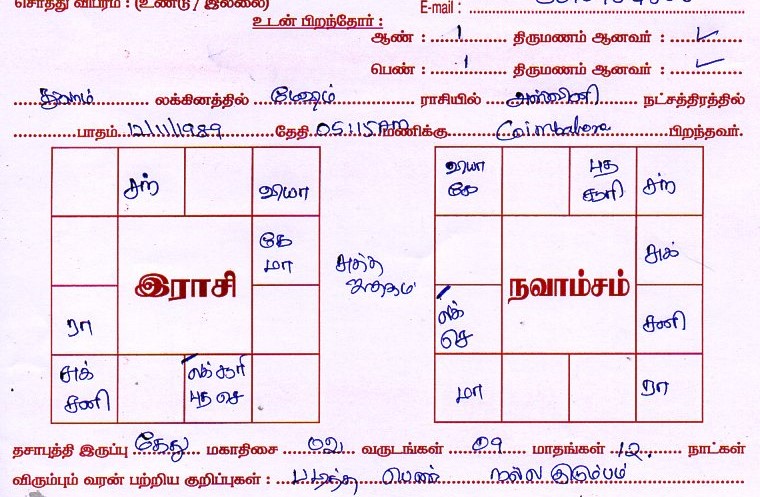 சொத்து விபரம் : (உண்டு / இல்லை)
E-mail :
உடன் பிறந்தோர் :
ஆண் : 1 திருமணம் ஆனவர் : ✓
பெண் : 1 திருமணம் ஆனவர் : ✓
துலாம் லக்கினத்தில் மேஷம் ராசியில் அஸ்வினி நட்சத்திரத்தில்
பாதம் 12/11/1989 தேதி 05:15AM மணிக்கு Coimbatore பிறந்தவர்.
சந் வியா
கே மா
இராசி
ரா
சுக் சனி
லக் சூரி புத செ
வியா கே
புத சூரி
சந்
சுக்
நவாம்சம்
லக் செ
சனி
மா
ரா
தசாபுத்தி இருப்பு கேது மகாதிசை 02 வருடங்கள் 09 மாதங்கள் 12 நாட்கள்
விரும்பும் வரன் பற்றிய குறிப்புகள் : படித்த பெண் நல்ல குடும்பம்